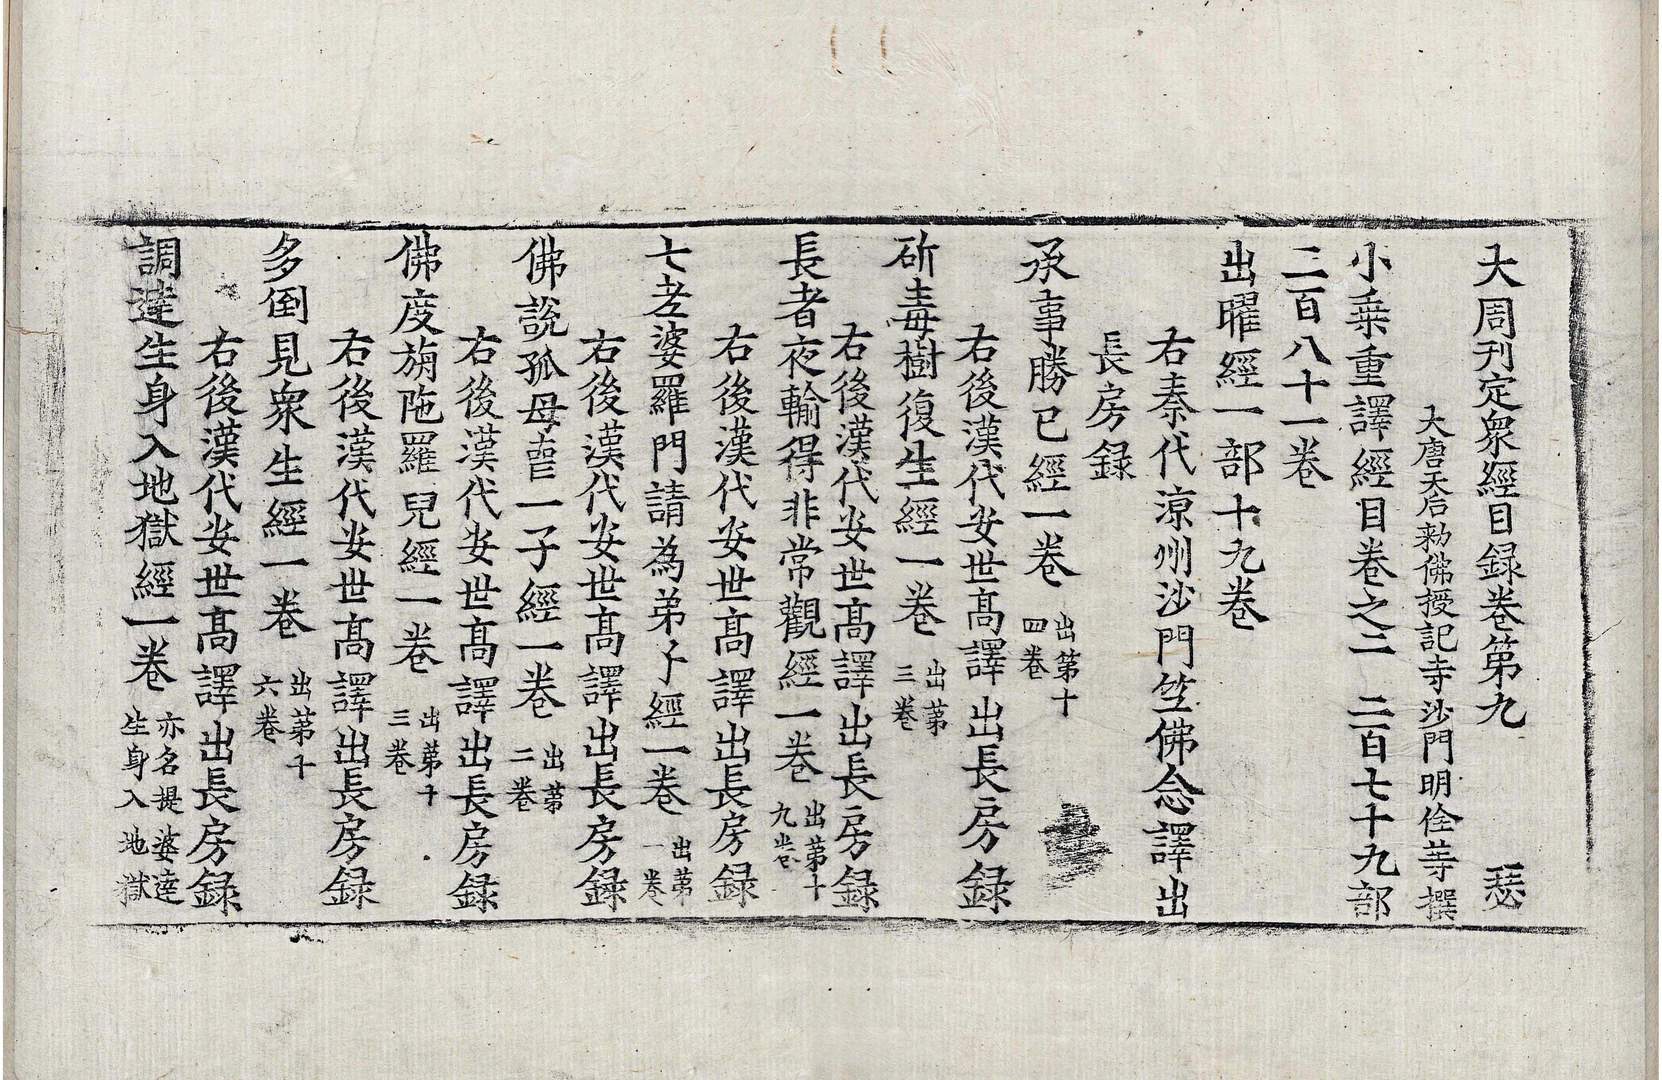 大周刊定衆經目録卷第九　瑟
大唐天后勑佛授記寺沙門明佺䓁撰
小乗重譯經目卷之二　二百七十九部
二百八十一卷
出曜經一部十九卷
右秦代涼州沙門竺佛念譯出
長房録
承事勝已經一卷 出第十四卷
右後漢代安世髙譯出長房録
斫毒樹復生經一卷 出第三卷
右後漢代安世髙譯出長房録
長者夜輸得非常觀經一卷 出第十九卷
右後漢代安世髙譯出長房録
七老婆羅門請為弟子經一卷 出第一卷
右後漢代安世髙譯出長房録
佛説孤母喪一子經一卷 出第二卷
右後漢代安世髙譯出長房録
佛度旃陁羅兒經一卷 出第十三卷
右後漢代安世髙譯出長房録
多倒見衆生經一卷 出第十六卷
右後漢代安世髙譯出長房録
調達生身入地獄經一卷 亦名提婆達生身入地獄